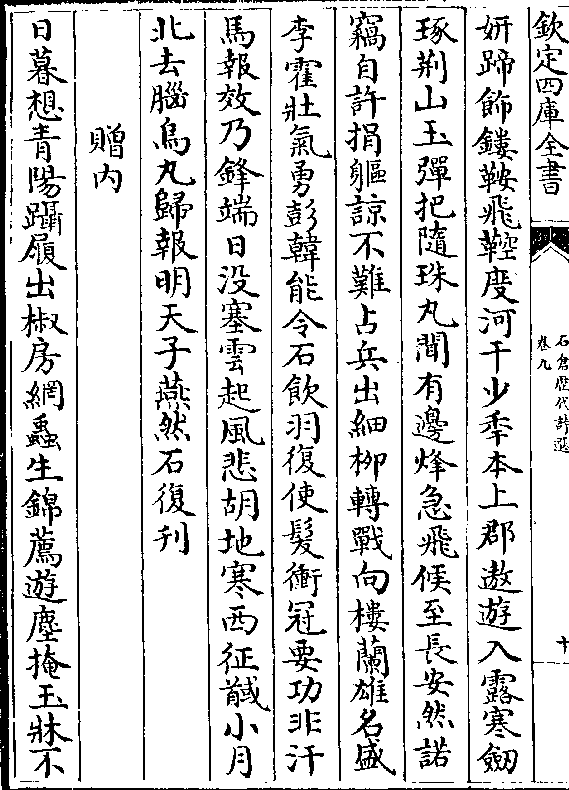 欽定四庫全書
石倉歷代詩選
卷九
十
妍蹄飾鏤鞍飛鞚度河干少季本上郡遨遊入露寒劒
琢荆山玉彈把隨珠丸聞有邊烽急飛候至長安然諾
竊自許捐軀諒不難占兵出細栁轉戰向樓蘭雄名盛
李霍壯氣勇彭韓能令石飲羽復使髮衝冠要功非汗
馬報效乃鋒端日没塞雲起風悲胡地寒西征馘小月
北去腦烏丸歸報明天子燕然石復刋
贈内
日暮想青陽躡履出椒房網蟲生錦薦遊塵掩玉牀不